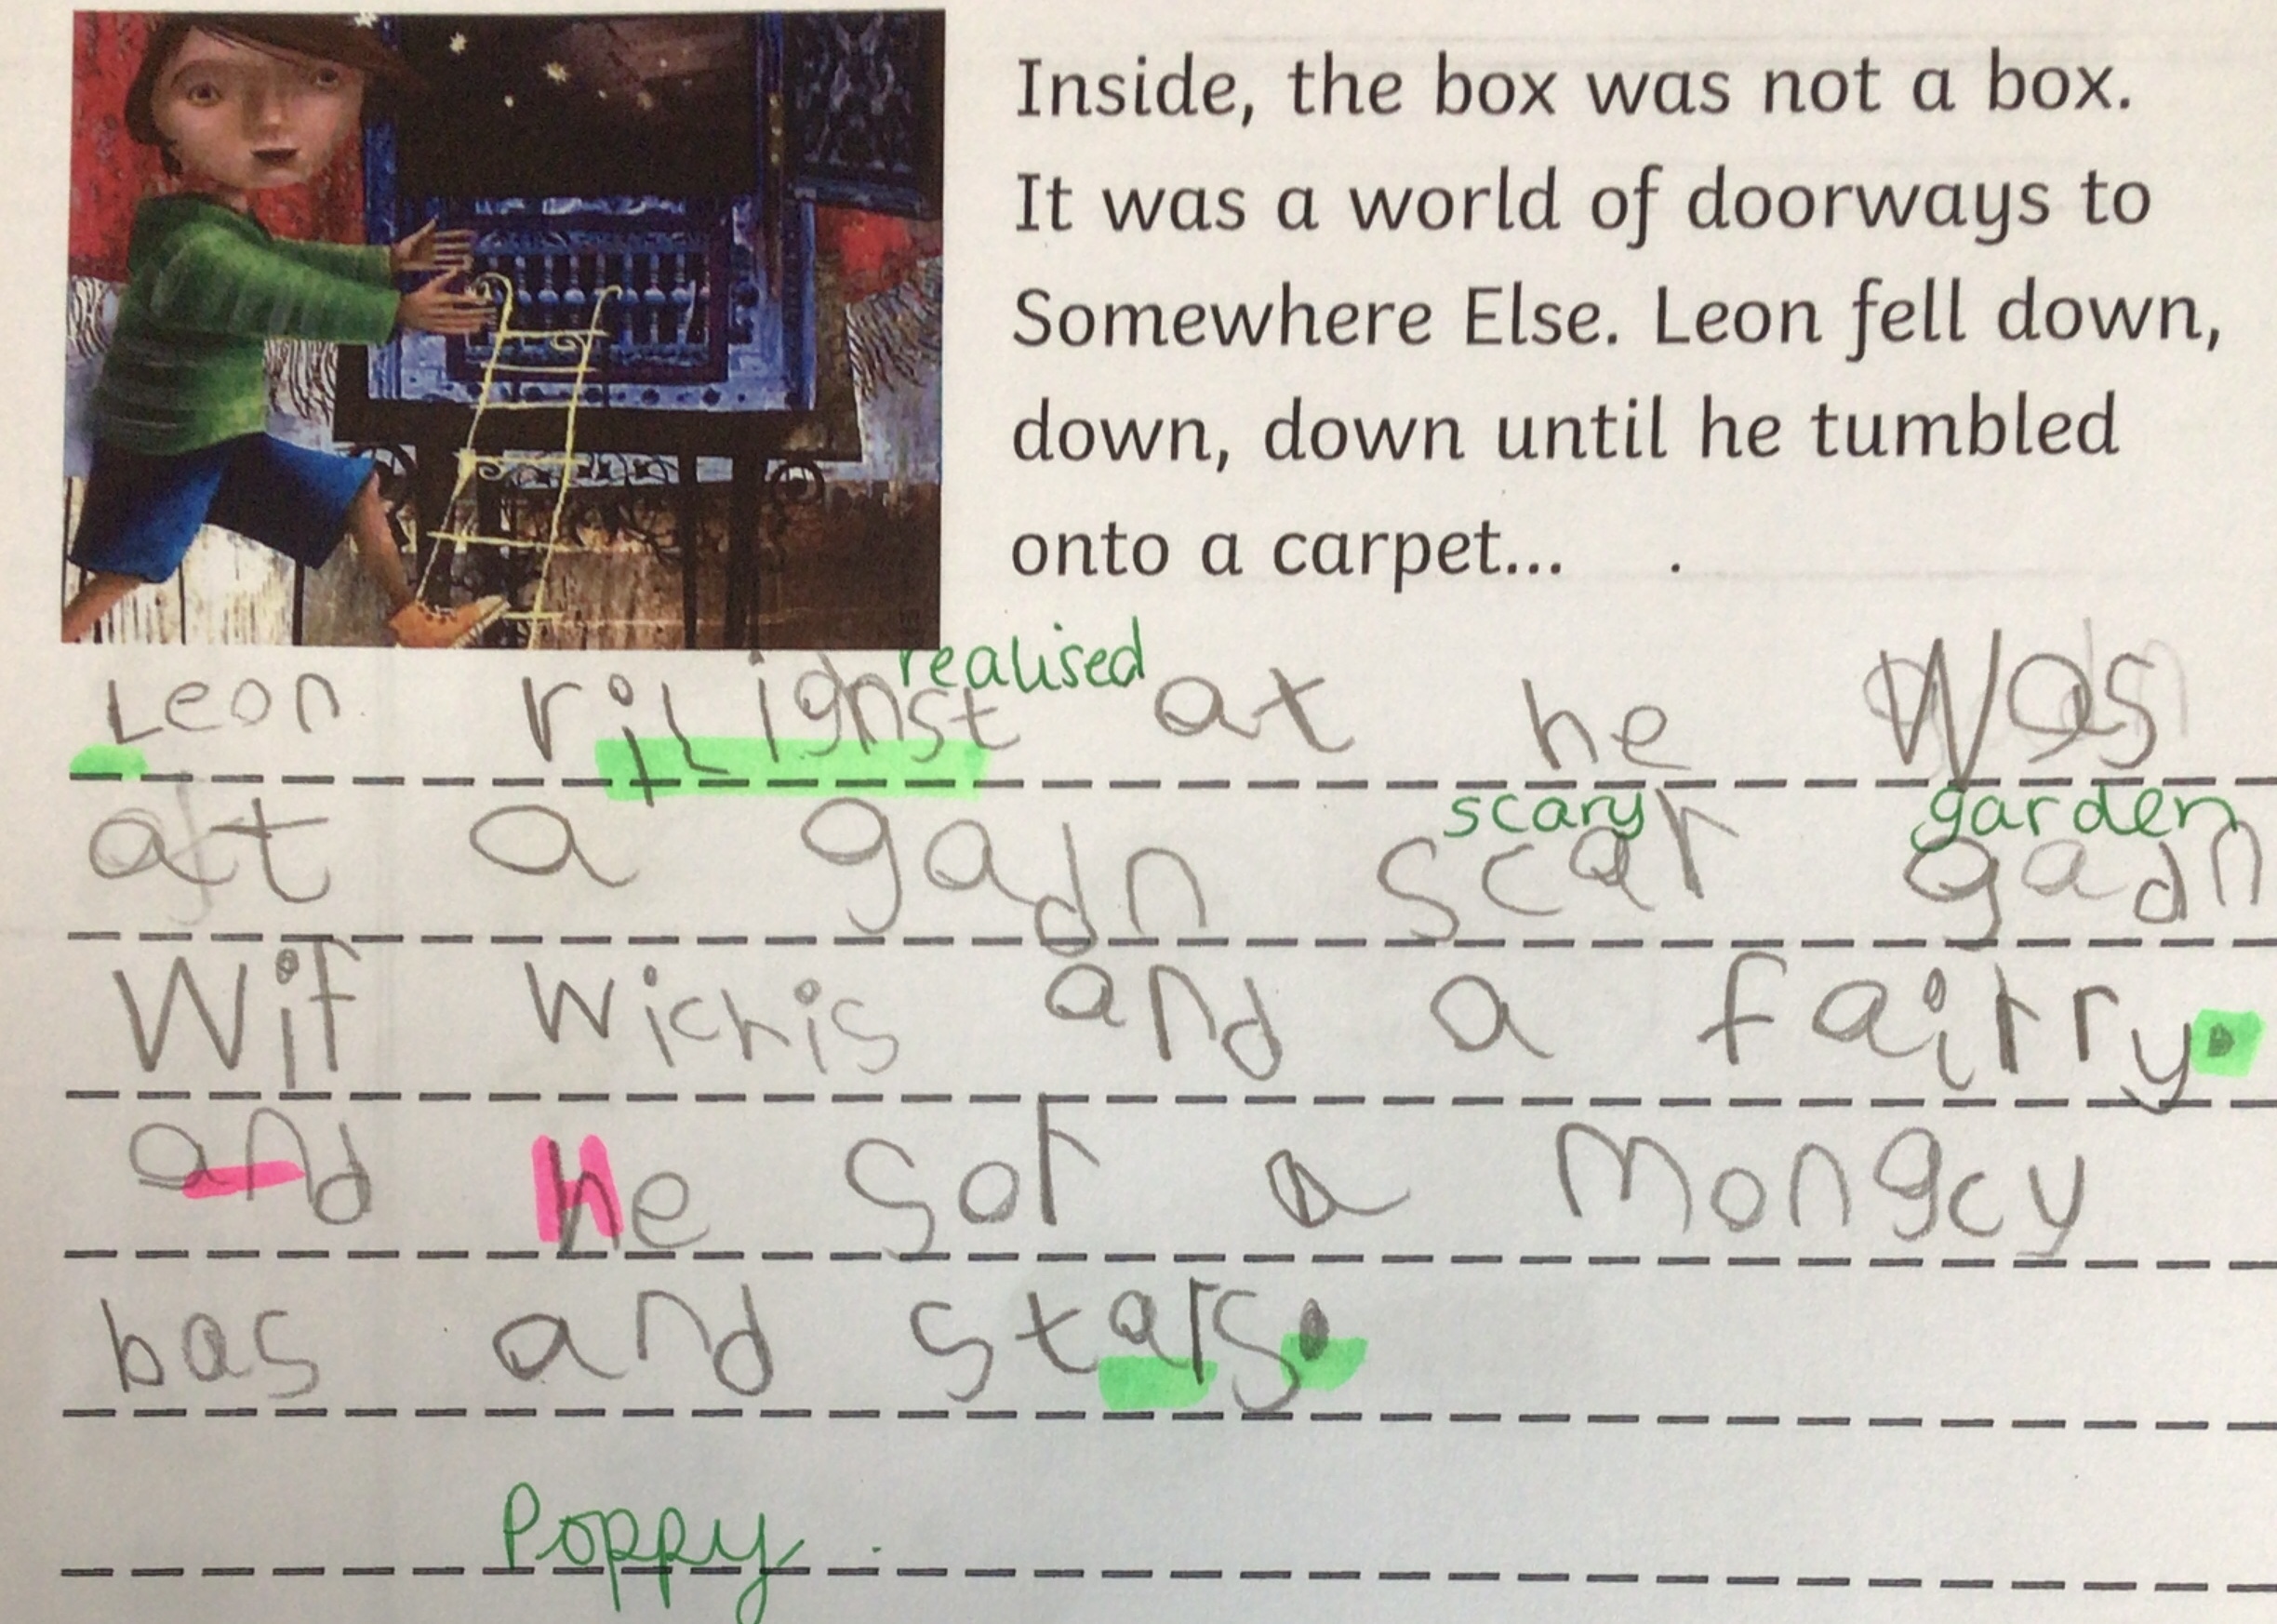 Inside, the box was not a box.
It was a world of doorways to
Somewhere Else. Leon fell down,
down, down until he tumbled
onto a carpet...
realised
Leon rilighst at he was
scary garden
at a gadn scar gadn
Wif wichis and a fairry.
and he sor a mongcy
bas and stars.
Poppy